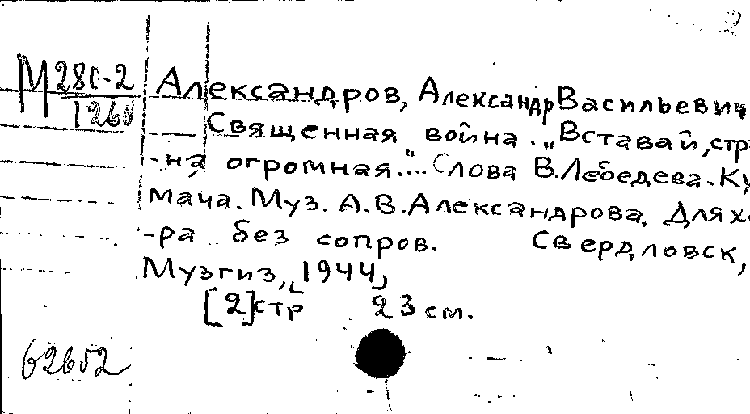 2
М 28с-2
1260
Александров, Александр Васильевич
Священная война. "Вставай, стра
-на огромная..." Слова В. Лебедева-Ку
мача. Муз. А.В. Александрова. Для хо
-ра без сопров. Свердловск,
Музгиз, [1944]
[2]стр 23 см.
62652